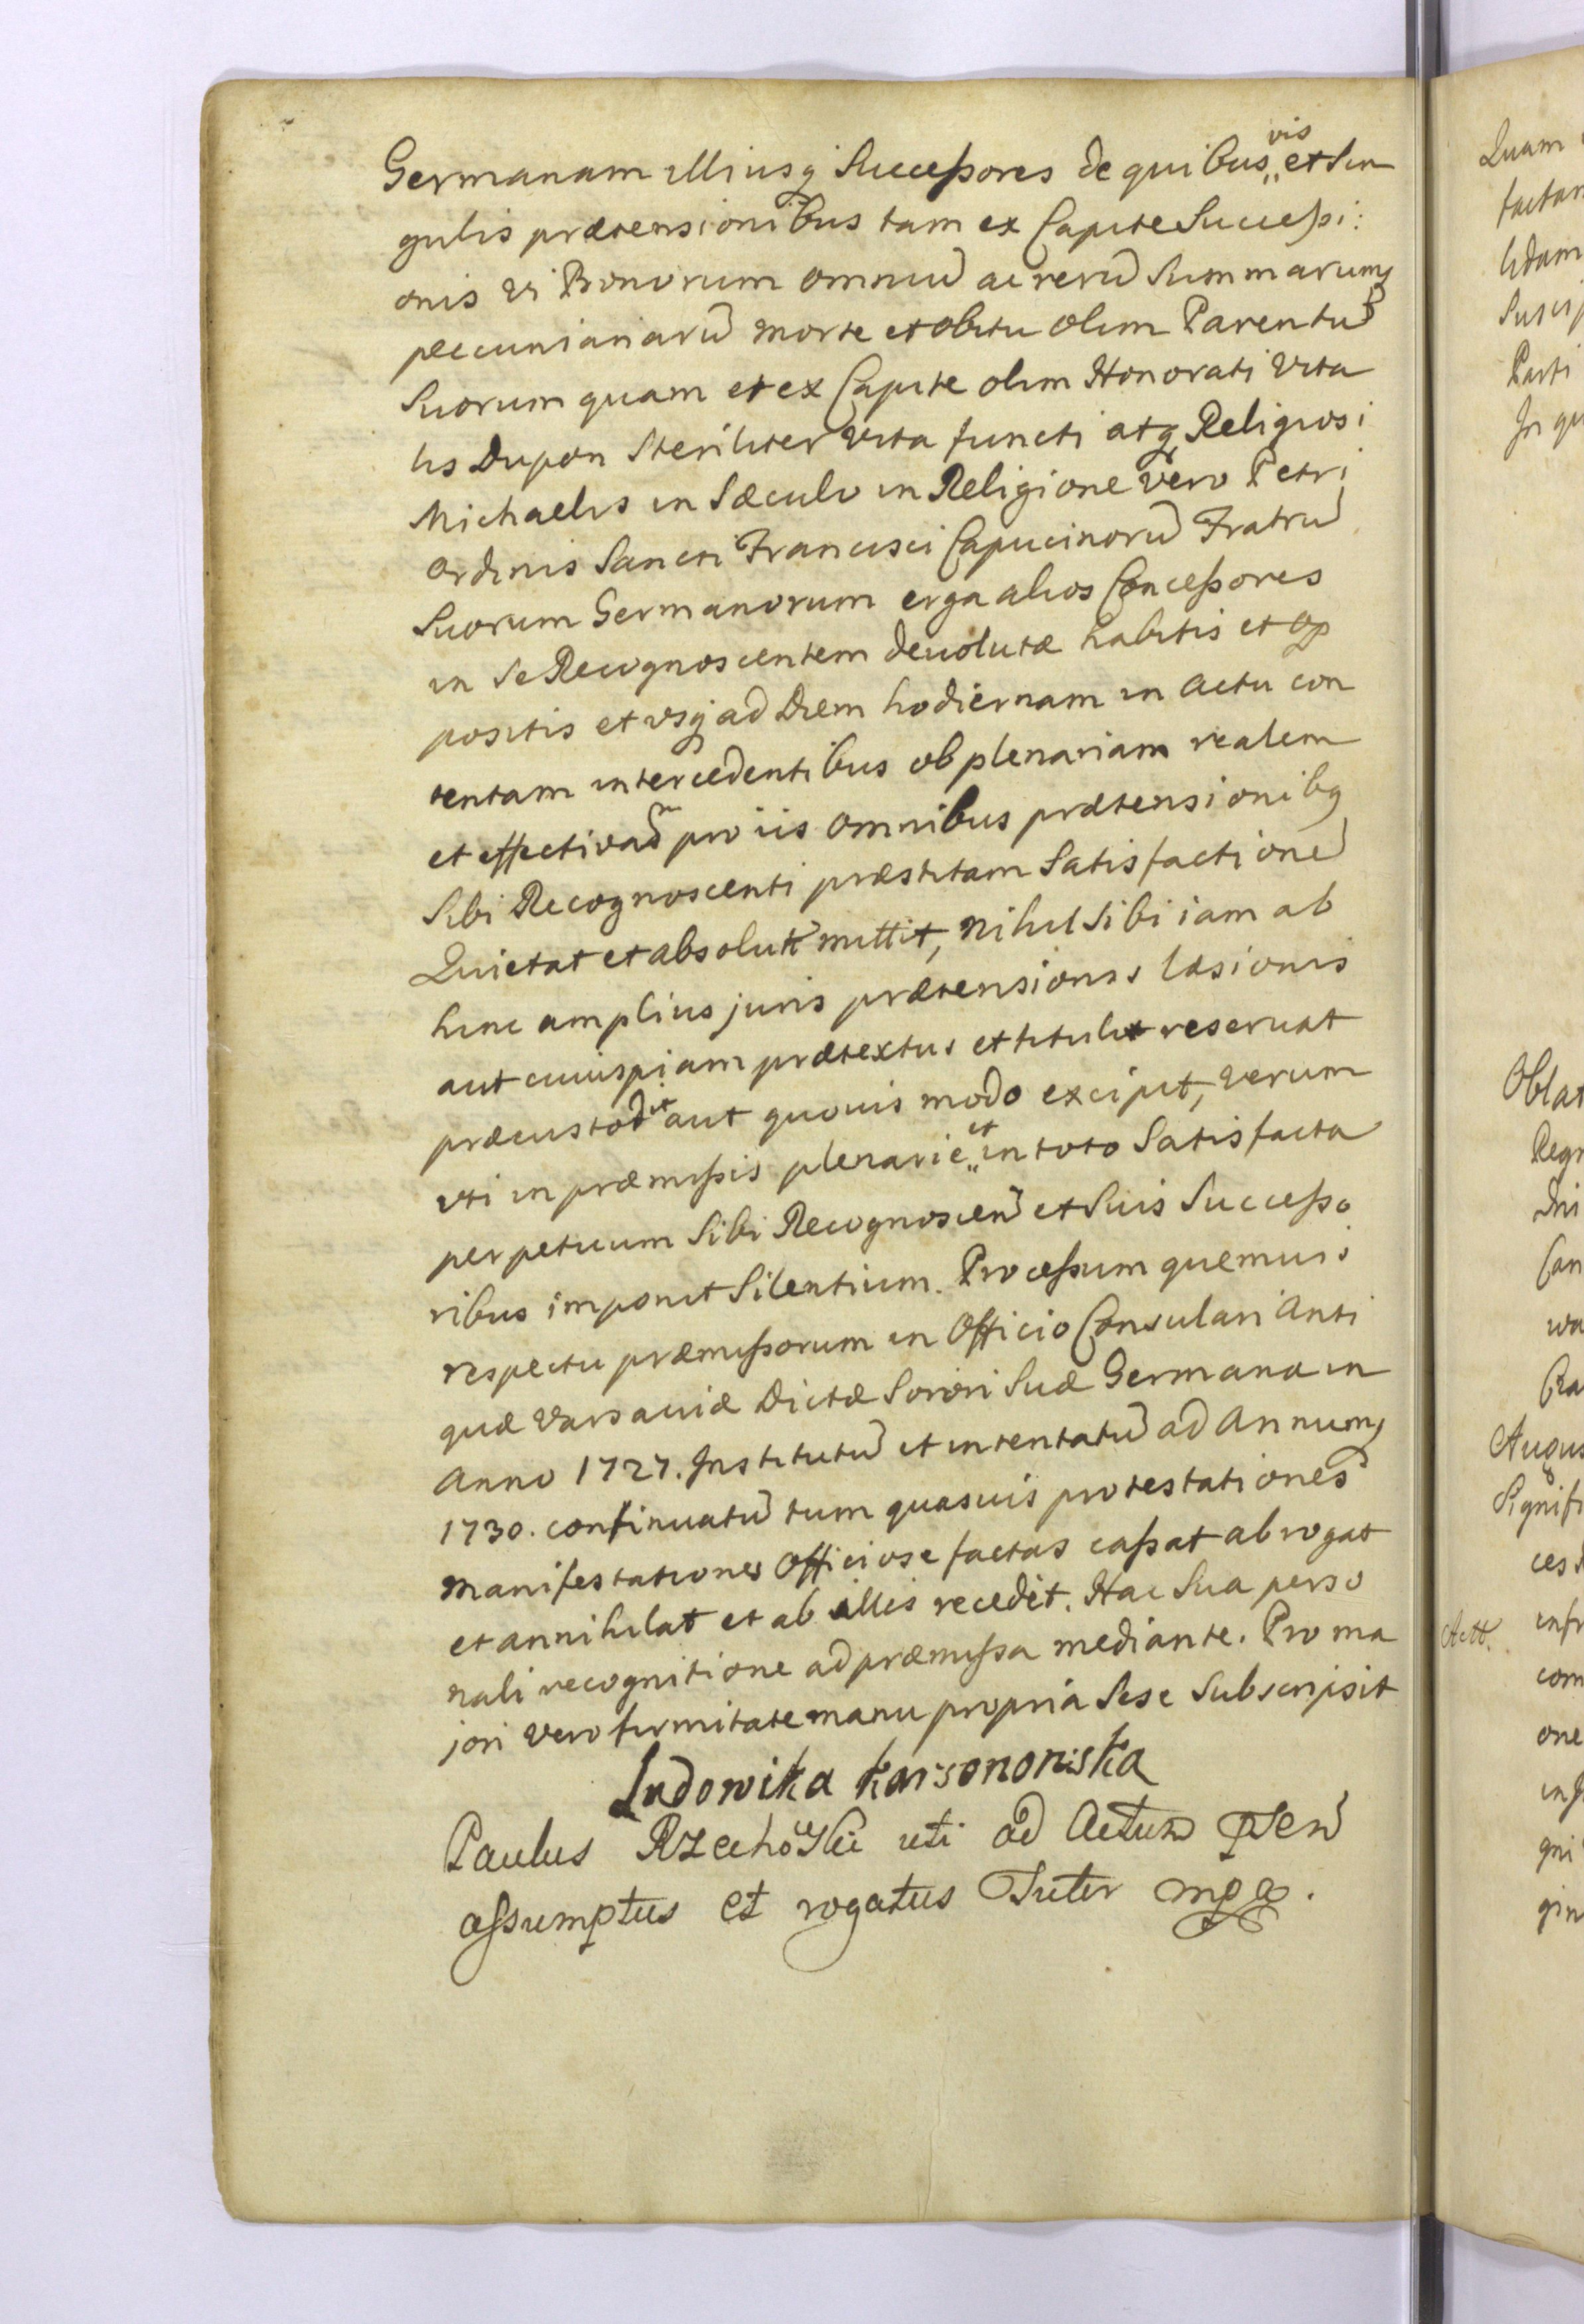 Germanam illiusq Successores de quibus„vis et Sin
gulis prætensionibus tam ex Capite Successi:
onis vi Bonorum omniu ac reru Summarum
pecuniariaru morte et obitu olim Parentu
Suorum quam et ex Capite olim Honorati Vita
lis Dupon Steriliter vita functi atq Religiosi
Michaelis in Sæculo in Religione vero Petri
Ordinis Sancti Francisci Capucinoru Fratru
Suorum Germanorum erga alios Concessores
in Se Recognoscentem devolutæ habitis et op
positis et usq ad Diem hodiernam in actu con
tentam intercedentibus ob plenariam realem
et effectivam pro iis omnibus prætensionibq
Sibi Recognoscenti præstitam Satisfactione
Quietat et absolute mittit, nihil Sibi iam ab
hinc amplius juris prætensionis læsionis
aut cuiuspiam prætextus et tituli reservat
præcustodit aut quovis modo excipit, verum
uti in præmissis plenarie„et in toto Satisfacta
perpetuum Sibi Recognoscen et Suis Successo
ribus imponit Silentium. Processum quemvis
respectu præmissorum in Officio Consulari Anti
quæ Varsaviæ Dictæ Sorori Suæ Germana in
Anno 1727. Institutu et intentatu ad Annum
1730. continuatu tum quasvis protestationes
manifestationes Officiose factas cassat abrogat
et annihilat et ab illis recedit. Hac Sua perso
nali recognitione ad præmissa mediante. Pro ma
jori vero firmitate manu propria Sese Subscripsit
Ludowika
Paulus uti ad Actum psen
assumptus et rogatus Tutor mpa.
Quam
Parti
Oblat
Augus
Signifi
Actt.
com
one
gni
gin